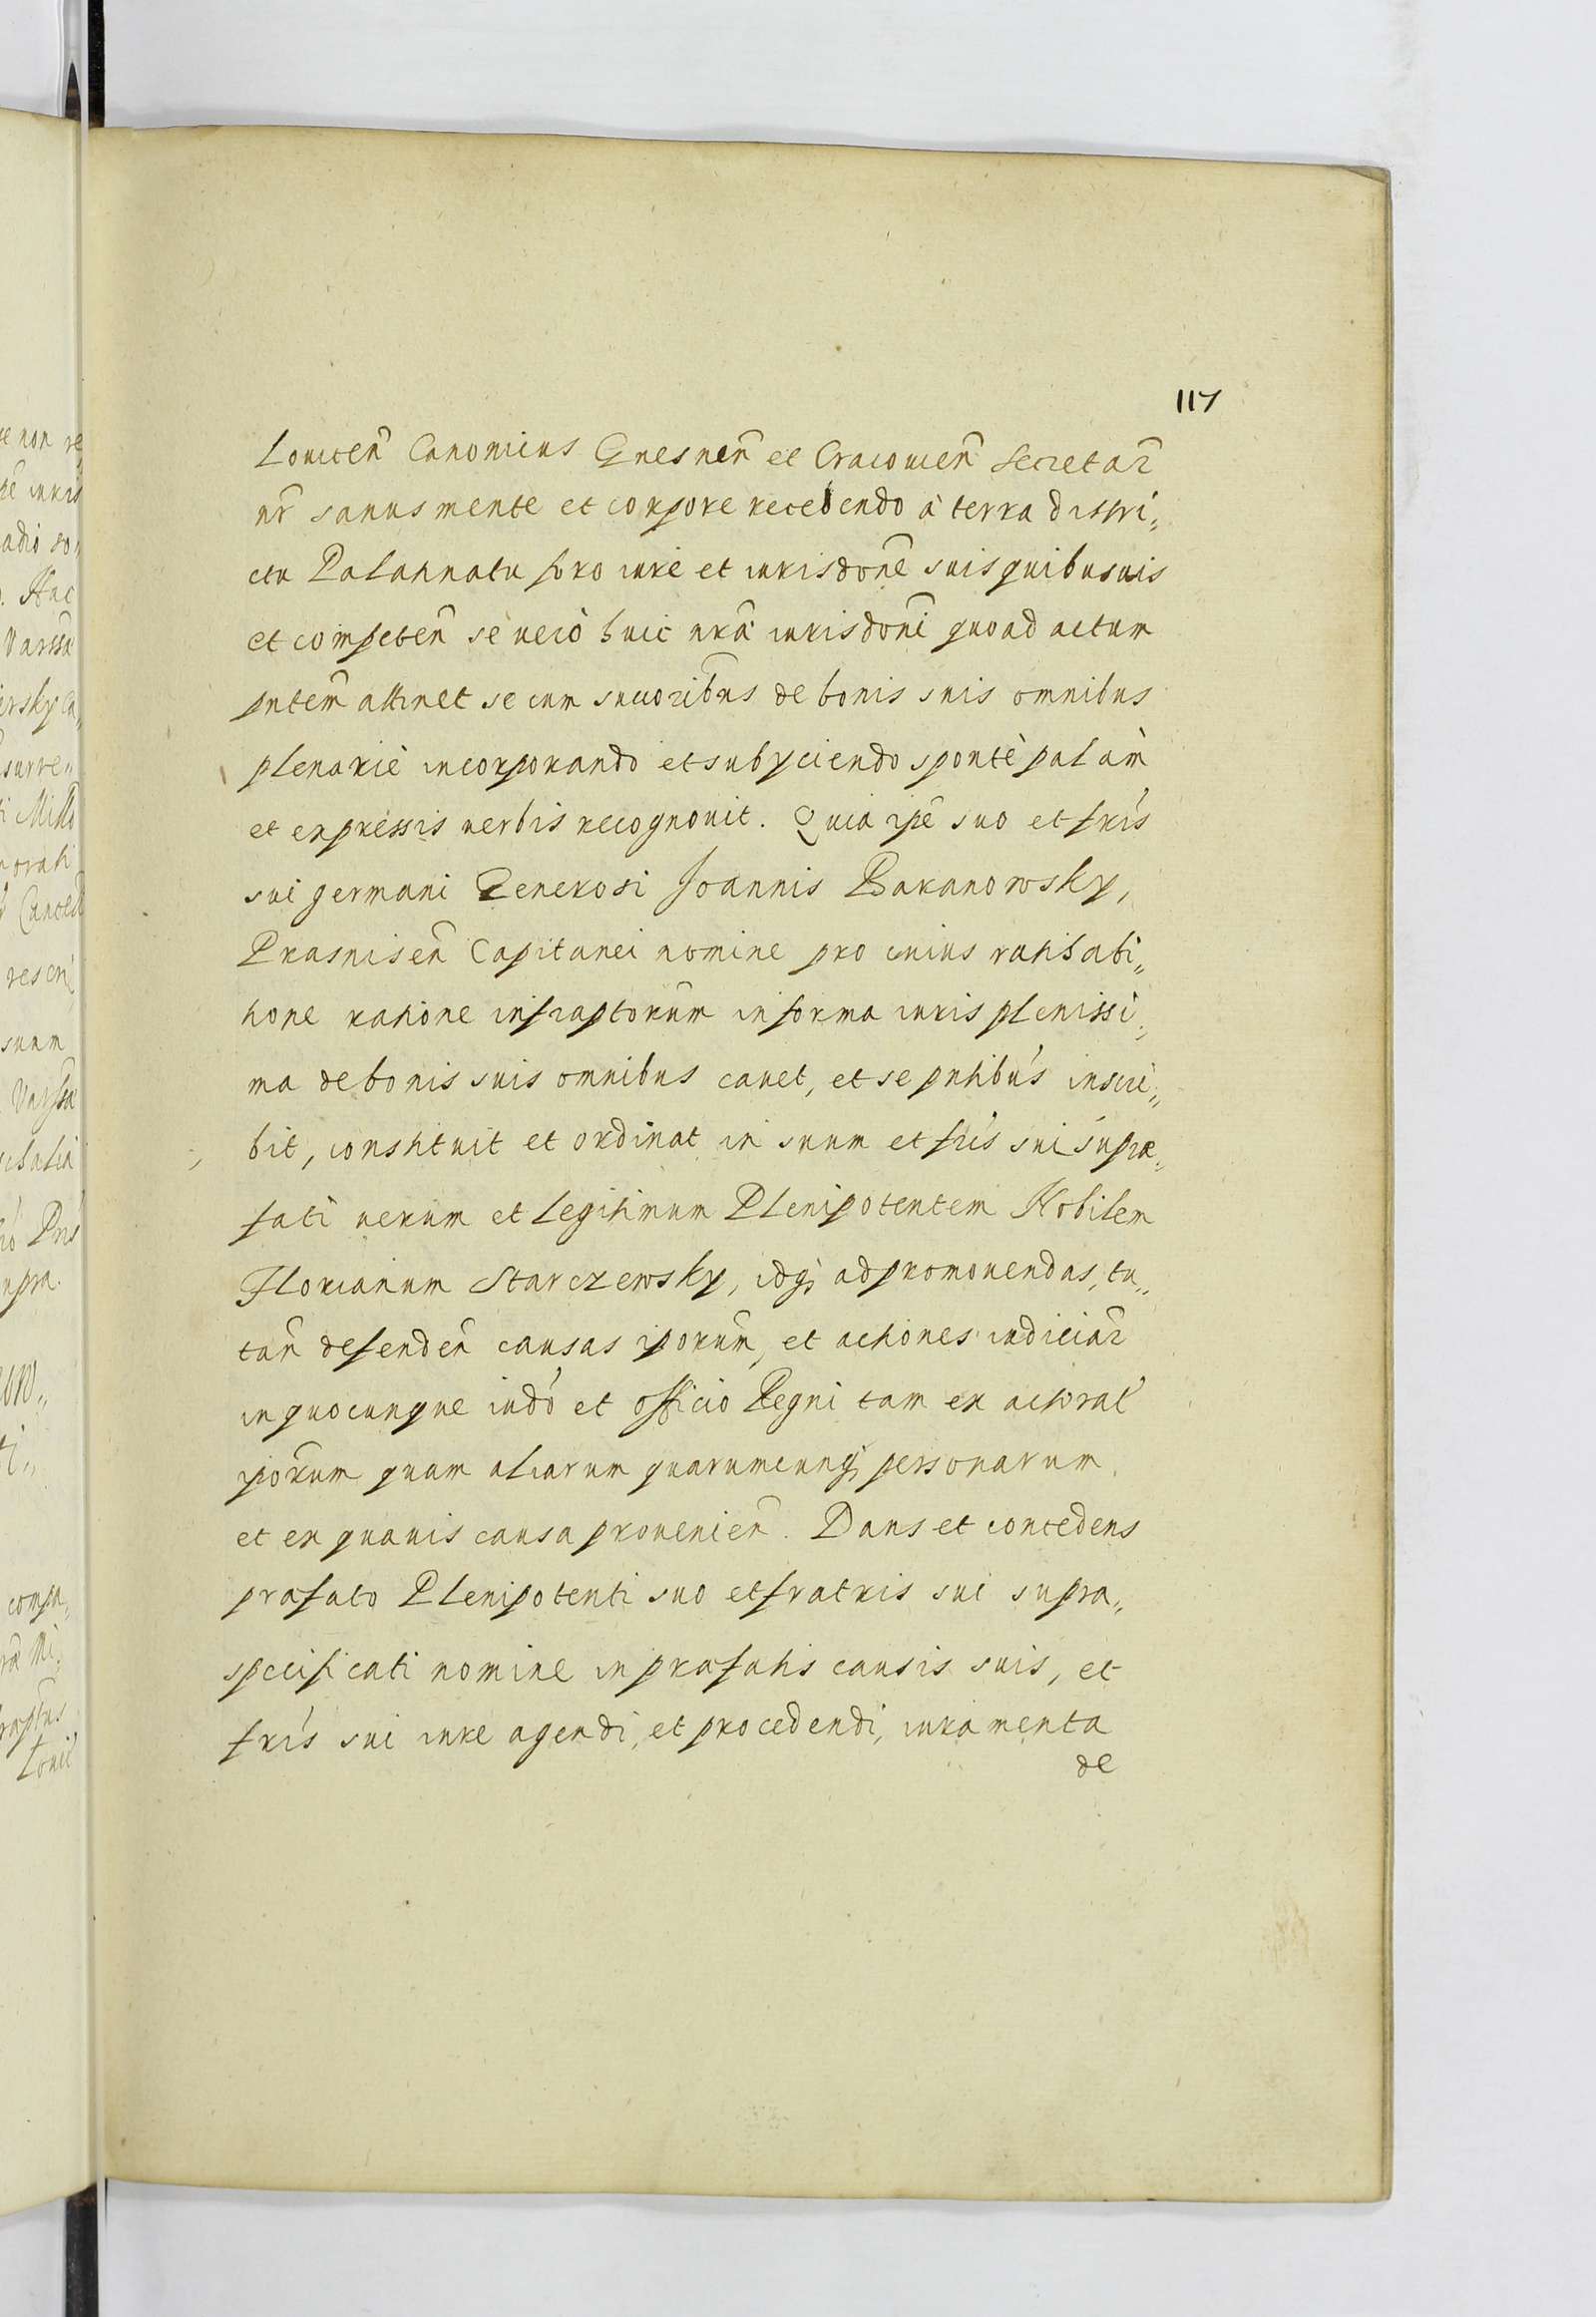 117
Louicen̄ Canonicus Gnesnen̄ et Cracouien̄ Secretar̄
nr̄ sanus mente et corpore recedendo à terra distri„
ctu Palatinatu foro iure et iurisdōne suis quibusuis
et competen̄ se uerò huic nr̄a iurisdōni quoad actum
pn̄tem attinet se cum succoribus de bonis suis omnibus
plenariè incorporando et subyciendo spontè palàm
et expressis uerbis recognouit. Quia ipē suo et fris
sui germani Generosi Joannis Baranowsky,
Prasnisen̄ Capitanei nomine pro cuius ratihabi„
tione ratione infraptorum in forma iuris plenissi„
ma de bonis suis omnibus cauet, et se pntibus inscri„
bit, constituit et ordinat in suum et fris sui supra„
fati uerum et legitimum Plenipotentem Nobilem
Florianum Starczewsky, idq; ad promouendas, tu„
tan̄ defenden̄ causas ipōrum, et actiones iudiciar̄
in quocunque iudō et officio Regni tam ex actoral̄
ipōrum quam aliarum quarumcunq; personarum
et ex quauis causa prouenien̄. Dans et concedens
præfato Plenipotenti suo et fratris sui supra„
specificati nomine in præfatis causis suis, et
fris sui iure agendi, et procedendi, iuramenta
de